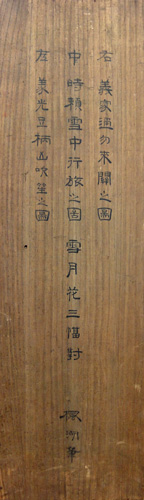 右 義家過勿来關之圖
中 時頼雪中行旅之圖 雪月花三幅對
左 義光足柄山吹笙之圖
筆